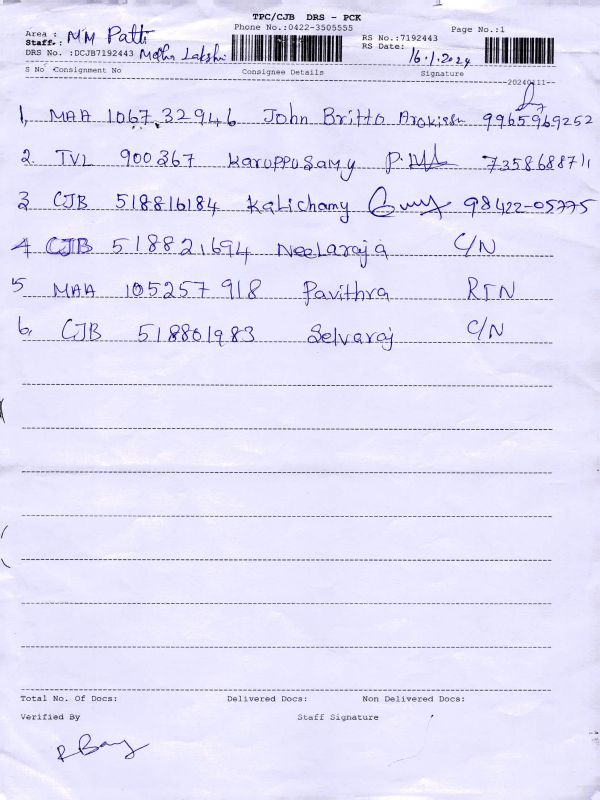 TPC/CJB DRS - PCK
Phone No.:0422-3505555
Page No.:1
Area : MM Patti
Staff : Madhu Lakshmi
DRS No. :DCJB7192443
RS No.:7192443
RS Date: 16.1.2024
S No Consignment No Consignee Details Signature
--20240111--
1, MAA 1067 32946 John Britto Arokiesh 9965969252
2. TVL 900367 Karuppusamy 7358688711
3 CJB 518816184 Kalichamy 98422-05775
4 CJB 518821694 Neelaraja C/N
5 MAA 105257918 Pavithra RTN
6, CJB 518801983 Selvaraj C/N
Total No. Of Docs: Delivered Docs: Non Delivered Docs:
Verified By Staff Signature